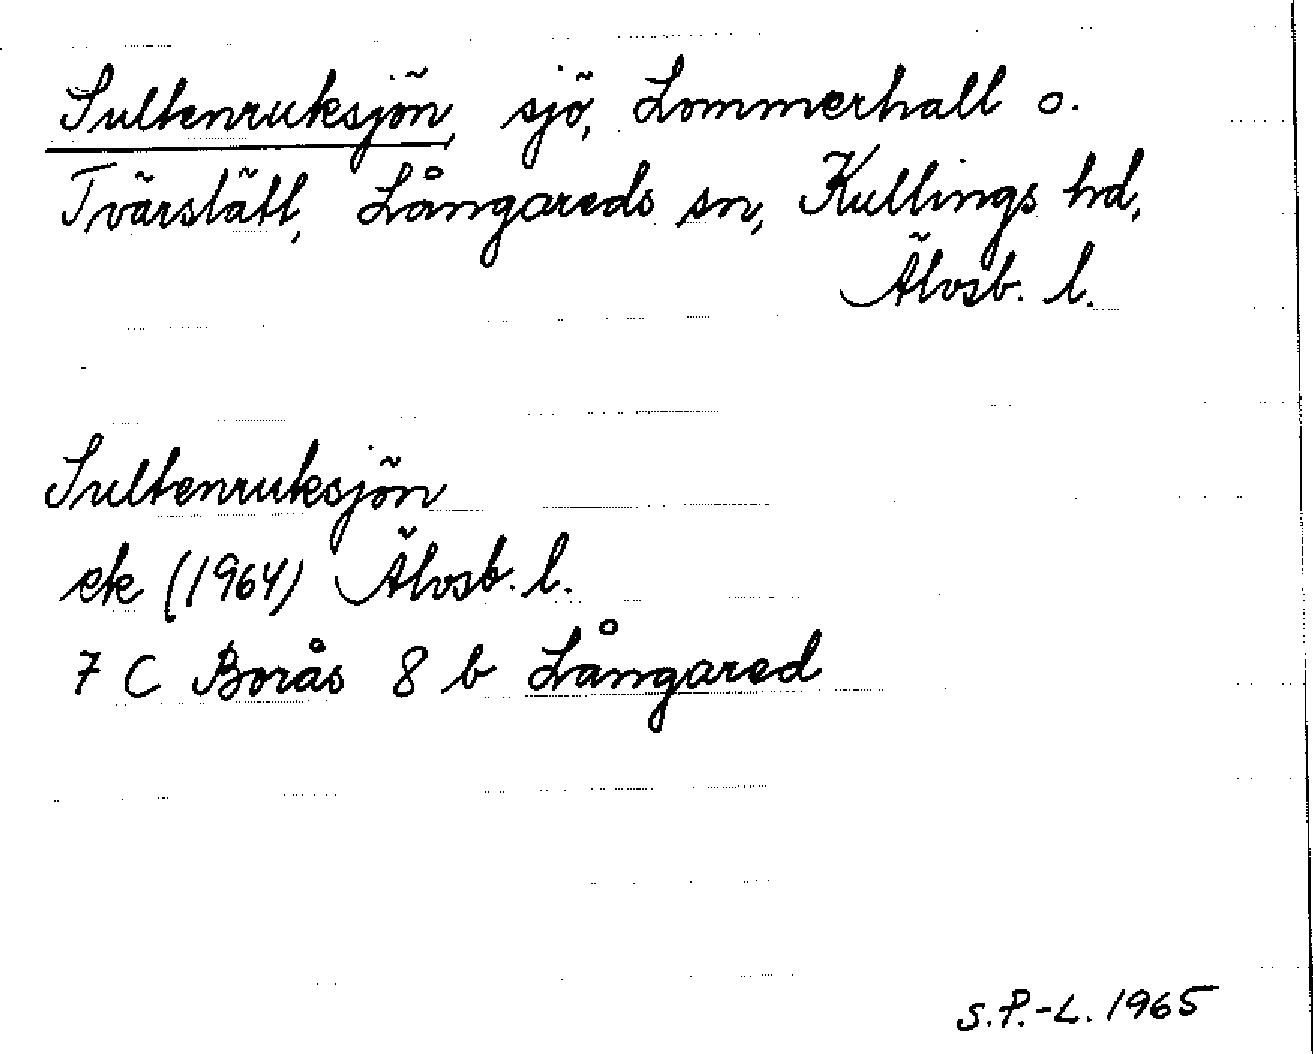 Sultenruksjön, sjö, Lommerhall o.
Tvärslätt, Långareds sn, Kullings hd,
Älvsb. l.
Sultenruksjön
ek (1964) Älvsb. l.
7 C Borås 8 b Långared
S.P.-L. 1965